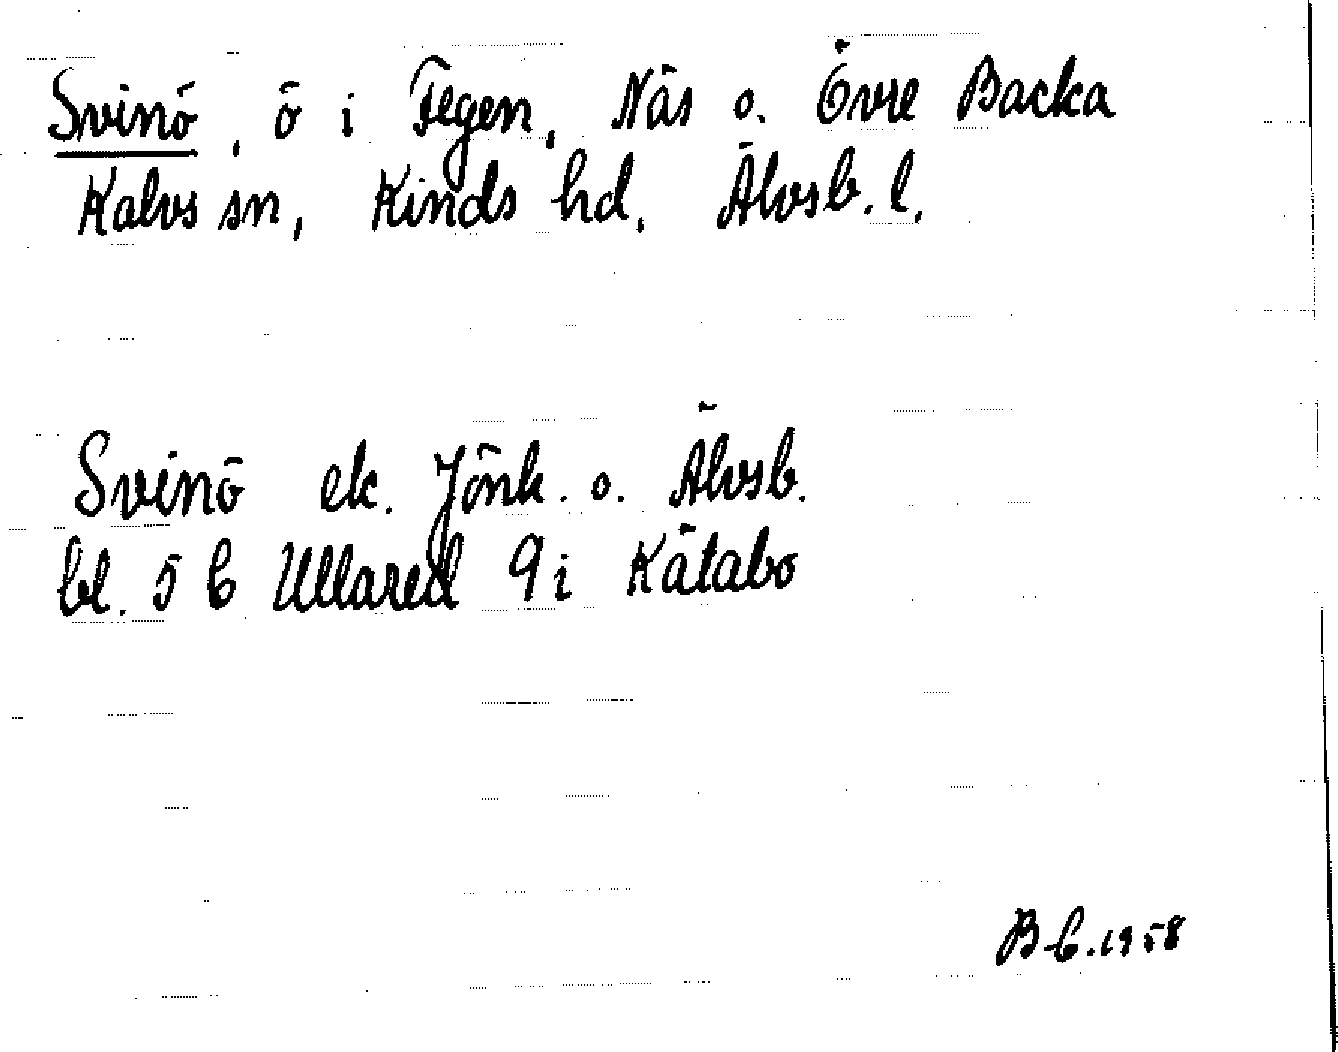 Svinö, ö i Fegen, Näs o. Övre Backa
Kalvs sn, Kinds hd, Älvsb. l.
Svinö ek. Jönk. o. Älvsb.
bl. 5 b Ullared 9 i Kätabo
B b. 1958